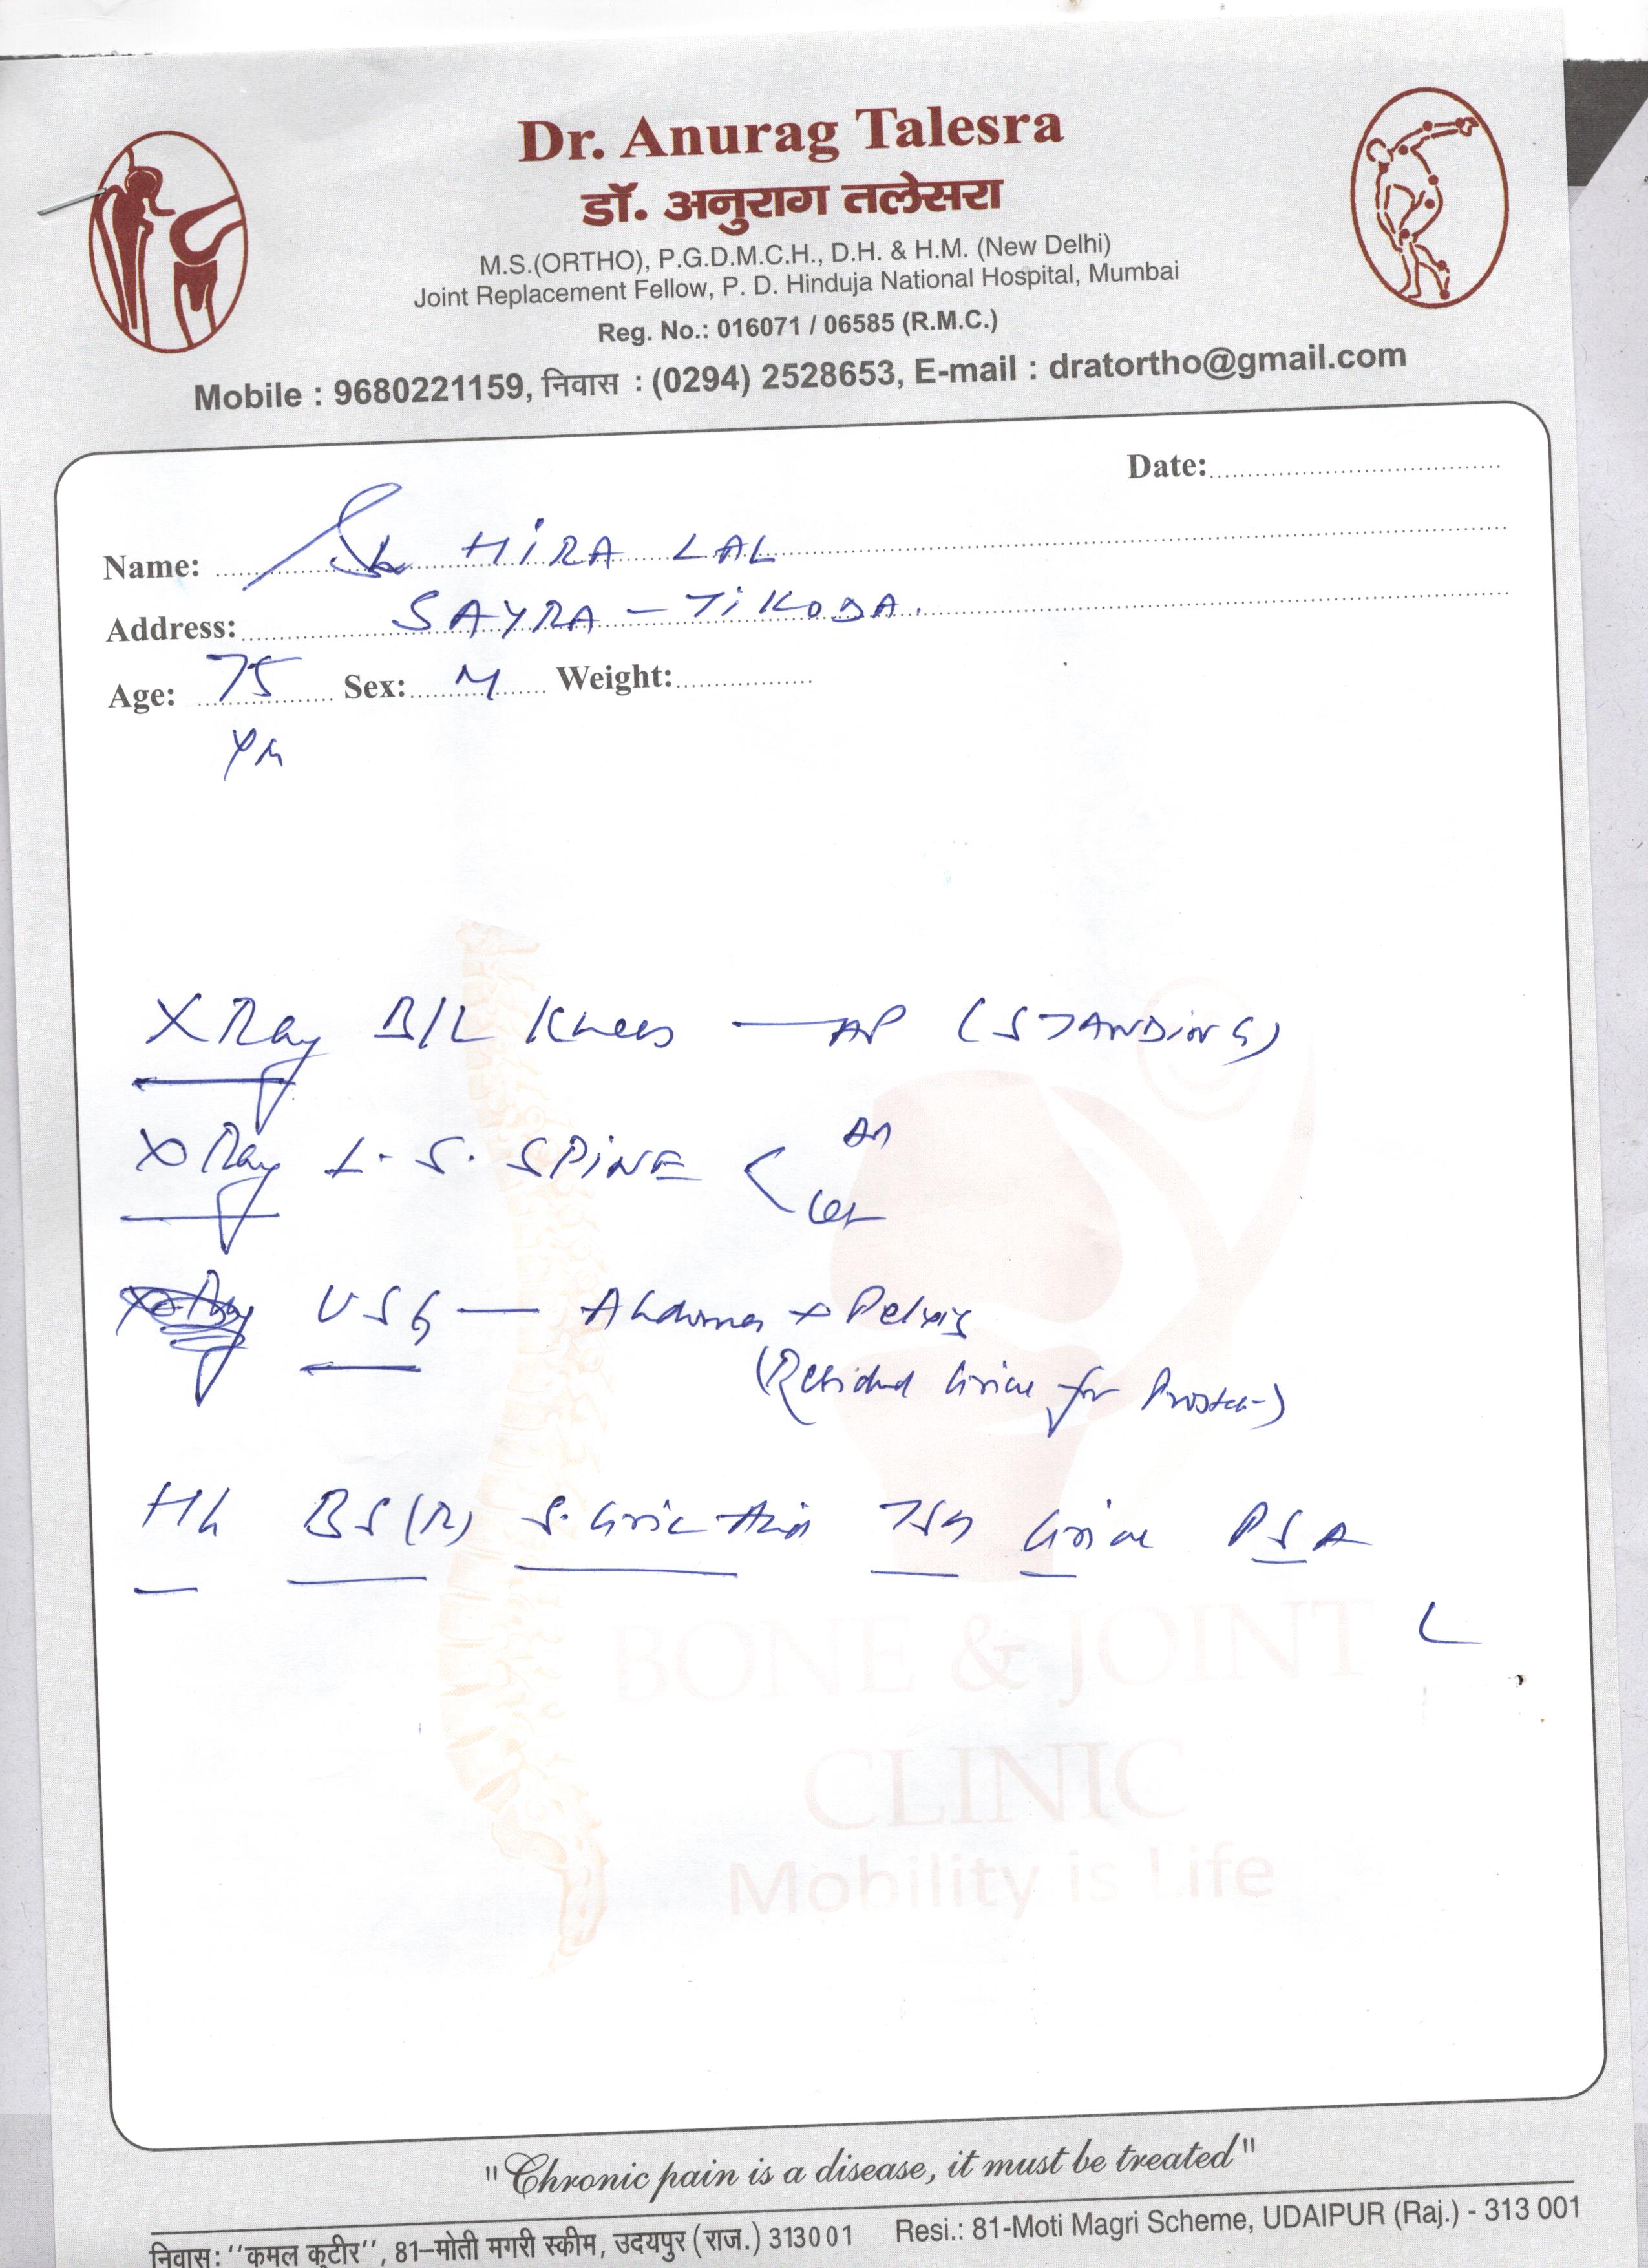 Dr. Anurag Talesra
डॉ. अनुराग तलेसरा
M.S.(ORTHO), P.G.D.M.C.H., D.H. & H.M. (New Delhi)
Joint Replacement Fellow, P. D. Hinduja National Hospital, Mumbai
Reg. No.: 016071 / 06585 (R.M.C.)
Mobile : 9680221159, निवास : (0294) 2528653, E-mail : dratortho@gmail.com
Date:
Name: HIRA LAL
Address: SAYRA - TIKODA.
Age: 75 Sex: M Weight:
X Ray B/L Knees — AP (STANDING)
X Ray L. S. SPINE < AP
Lat
USG — Abdomen + Pelvis
(Residual Urine for Prostate)
Hb BS(R) S. Uric Acid TSH Urine PSA
BONE & JOINT
CLINIC
Mobility is Life
"Chronic pain is a disease, it must be treated"
निवास: ''कमल कूटीर'', 81–मोती मगरी स्कीम, उदयपुर (राज.) 313001 Resi.: 81-Moti Magri Scheme, UDAIPUR (Raj.) - 313 001